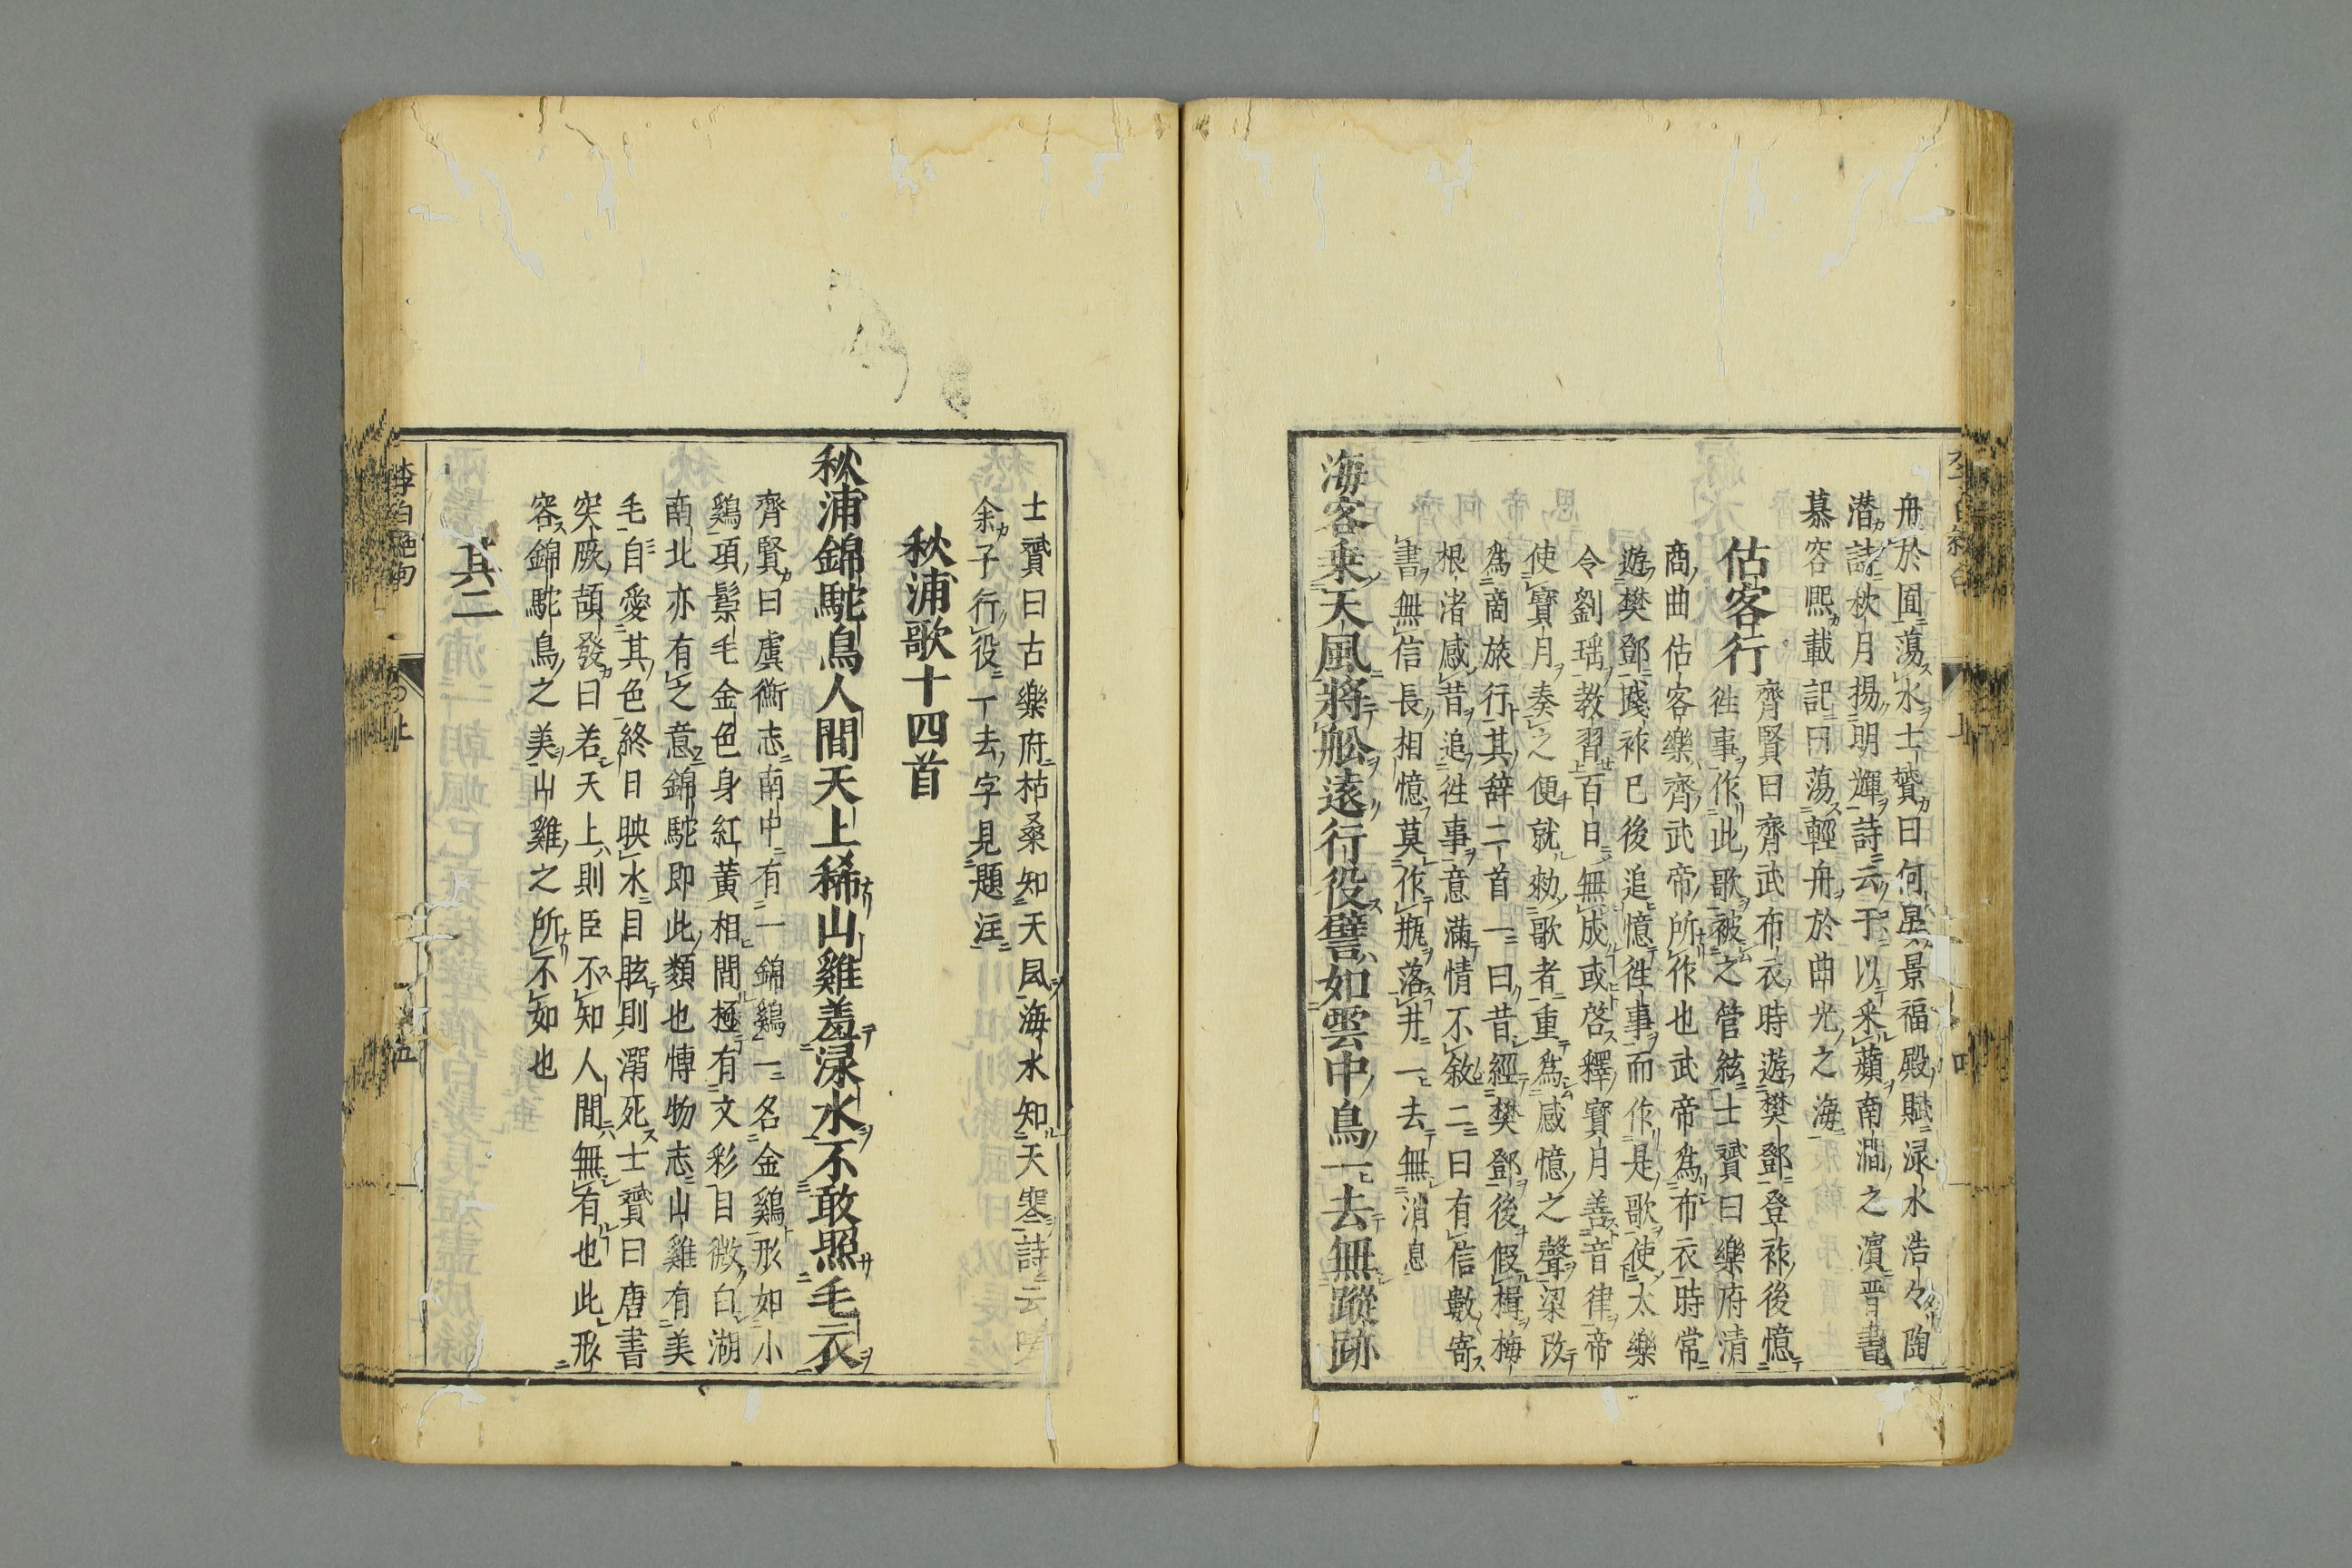 舟於囿蕩水士贇曰何晏景福殿賦淥水浩々陶
潜詩秋月揚明輝詩云于以采蘋南澗之濱晋書
慕容熙載記曰蕩輕舟於曲光之海
估客行
齊賢曰齊武布衣時遊樊鄧登祚後憶
徃事作此歌被之管絃士贇曰樂府清
商曲估客樂齊武帝所作也武帝爲布衣時常
遊樊鄧踐祚已後追憶徃事而作是歌使太樂
令劉瑶教習百日無成或啓釋寳月善音律帝
使寳月奏之便就勑歌者重爲感憶之聲梁改
爲商旅行其辞二首一曰昔經樊鄧後假楫梅
根渚感昔追徃事意滿情不敘二曰有信數寄
書無信長相憶莫作瓶落井一去無消息
海客乗天風將舩遠行役譬如雲中鳥一去無蹤跡
士贇曰古樂府枯桑知天風海水知天寒詩云
余子行役一去字見題注
秋浦歌十四首
秋浦錦駝鳥人間天上稀山雞羞淥水不敢照毛衣
齊賢曰虞衡志南中有一錦鷄一名金鷄形如小
鷄項鬃毛金色身紅黄相間極有文彩目微白湖
南北亦有之意錦駝即此類也博物志山雞有美
毛自愛其色終日映水目眩則溺死士贇曰唐書
突厥頡發曰若天上則臣不知人間無有也此形
容錦駝鳥之美山雞之所不如也
其二
李白絶句
上
五